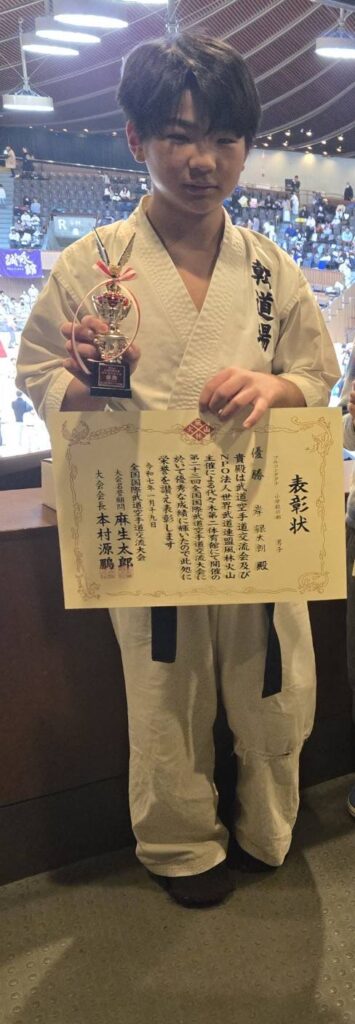 表彰状
小学6年 男子
優勝 殿
貴殿は武道空手道交流会及び
NPO法人世界武道連盟風林火山
主催による代々木第二体育館にて開催の
第二十三回全国国際武道空手道交流大会に
於いて優秀な成績に輝いたので此処に
栄誉を讃え表彰します
令和七年一月十九日
全国国際武道空手道交流大会
大会名誉顧問 麻生太郎
大会会長 木村源鵬
道場
R